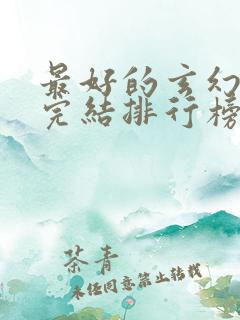 最好的玄幻
完结排行榜
茶青
未经同意禁止转载